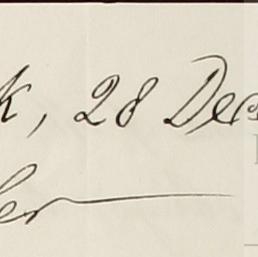 k, 28 Dec
ler